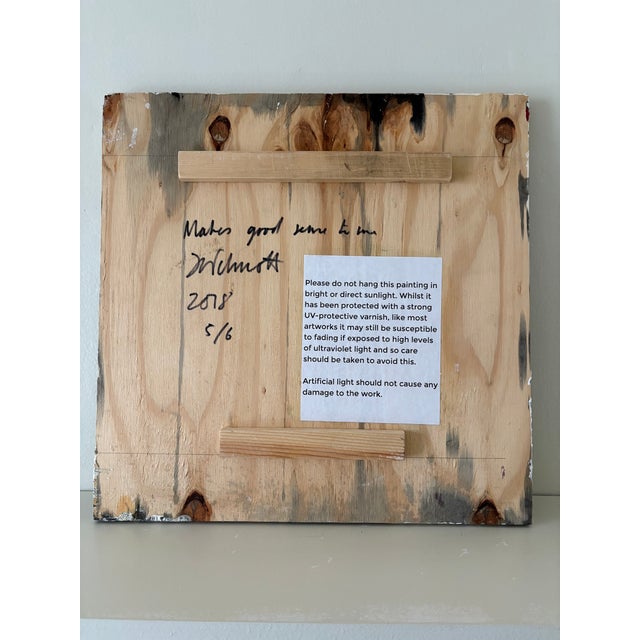 Makes good sense to me
2018
5/6
Please do not hang this painting in
bright or direct sunlight. Whilst it
has been protected with a strong
UV-protective varnish, like most
artworks it may still be susceptible
to fading if exposed to high levels
of ultraviolet light and so care
should be taken to avoid this.
Artificial light should not cause any
damage to the work.